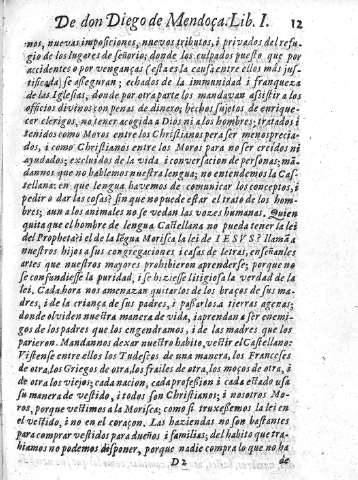 De don Diego de Mendoça. Lib. I. 12
nos, nuevas imposiciones, nuevos tributos, i privados del refu-
gio de los lugares de señorio; donde los culpados puesto que por
accidentes o por venganças (esta es la causa entre ellos mas jus-
tificada) se asseguran; echados de la immunidad i franqueza
de las Iglesias, donde por otra parte los mandavan assistir a los
officios divinos con penas de dinero; hechos sujetos de enrique-
cer clerigos, no tener acogida a Dios ni a los hombres; tratados i
tenidos como Moros entre los Christianos pera ser menosprecia-
dos, i como Christianos entre los Moros para no ser creidos ni
ayudados; excluidos de la vida i conversacion de personas; mã-
dannos que no hablemos nuestra lengua; no entendemos la Cas-
tellana: en que lengua havemos de comunicar los conceptos, i
pedir o dar las cosas? sin que no puede estar el trato de los hom-
bres; aun a los animales no se vedan las vozes humanas. Quien
quita que el hombre de lengua Castellana no pueda tener la lei
del Propheta? i el de la lẽgua Morisca la lei de IESVS? llamã a
nuestros hijos a sus congregaciones i casas de letras, enseñanles
artes que nuestros mayores prohibieron aprenderse; porque no
se confundiesse la puridad, i se hiziesse litigiosa la verdad de la
lei. Cada hora nos amenazan quitarlos de los braços de sus ma-
dres, i de la criança de sus padres, i passarlos a tierras agenas;
donde olviden nuestra manera de vida, i aprendan a ser enemi-
gos de los padres que los engendramos, i de las madres que los
parieron. Mandannos dexar nuestro habito, vestir el Castellano:
Vistense entre ellos los Tudescos de una manera, los Franceses
de otra, los Griegos de otra, los frailes de otra, los moços de otra, i
de otra los viejos; cada nacion, cada profession i cada estado usa
su manera de vestido, i todos son Christianos; i nosotros Mo-
ros, porque vestimos a la Morisca; como si truxessemos la lei en
el vestido, i no en el coraçon. Las haziendas no son bastantes
para comprar vestidos para dueños i familias; del habito que tra-
hiamos no podemos disponer, porque nadie compra lo que no ha
D 2 de